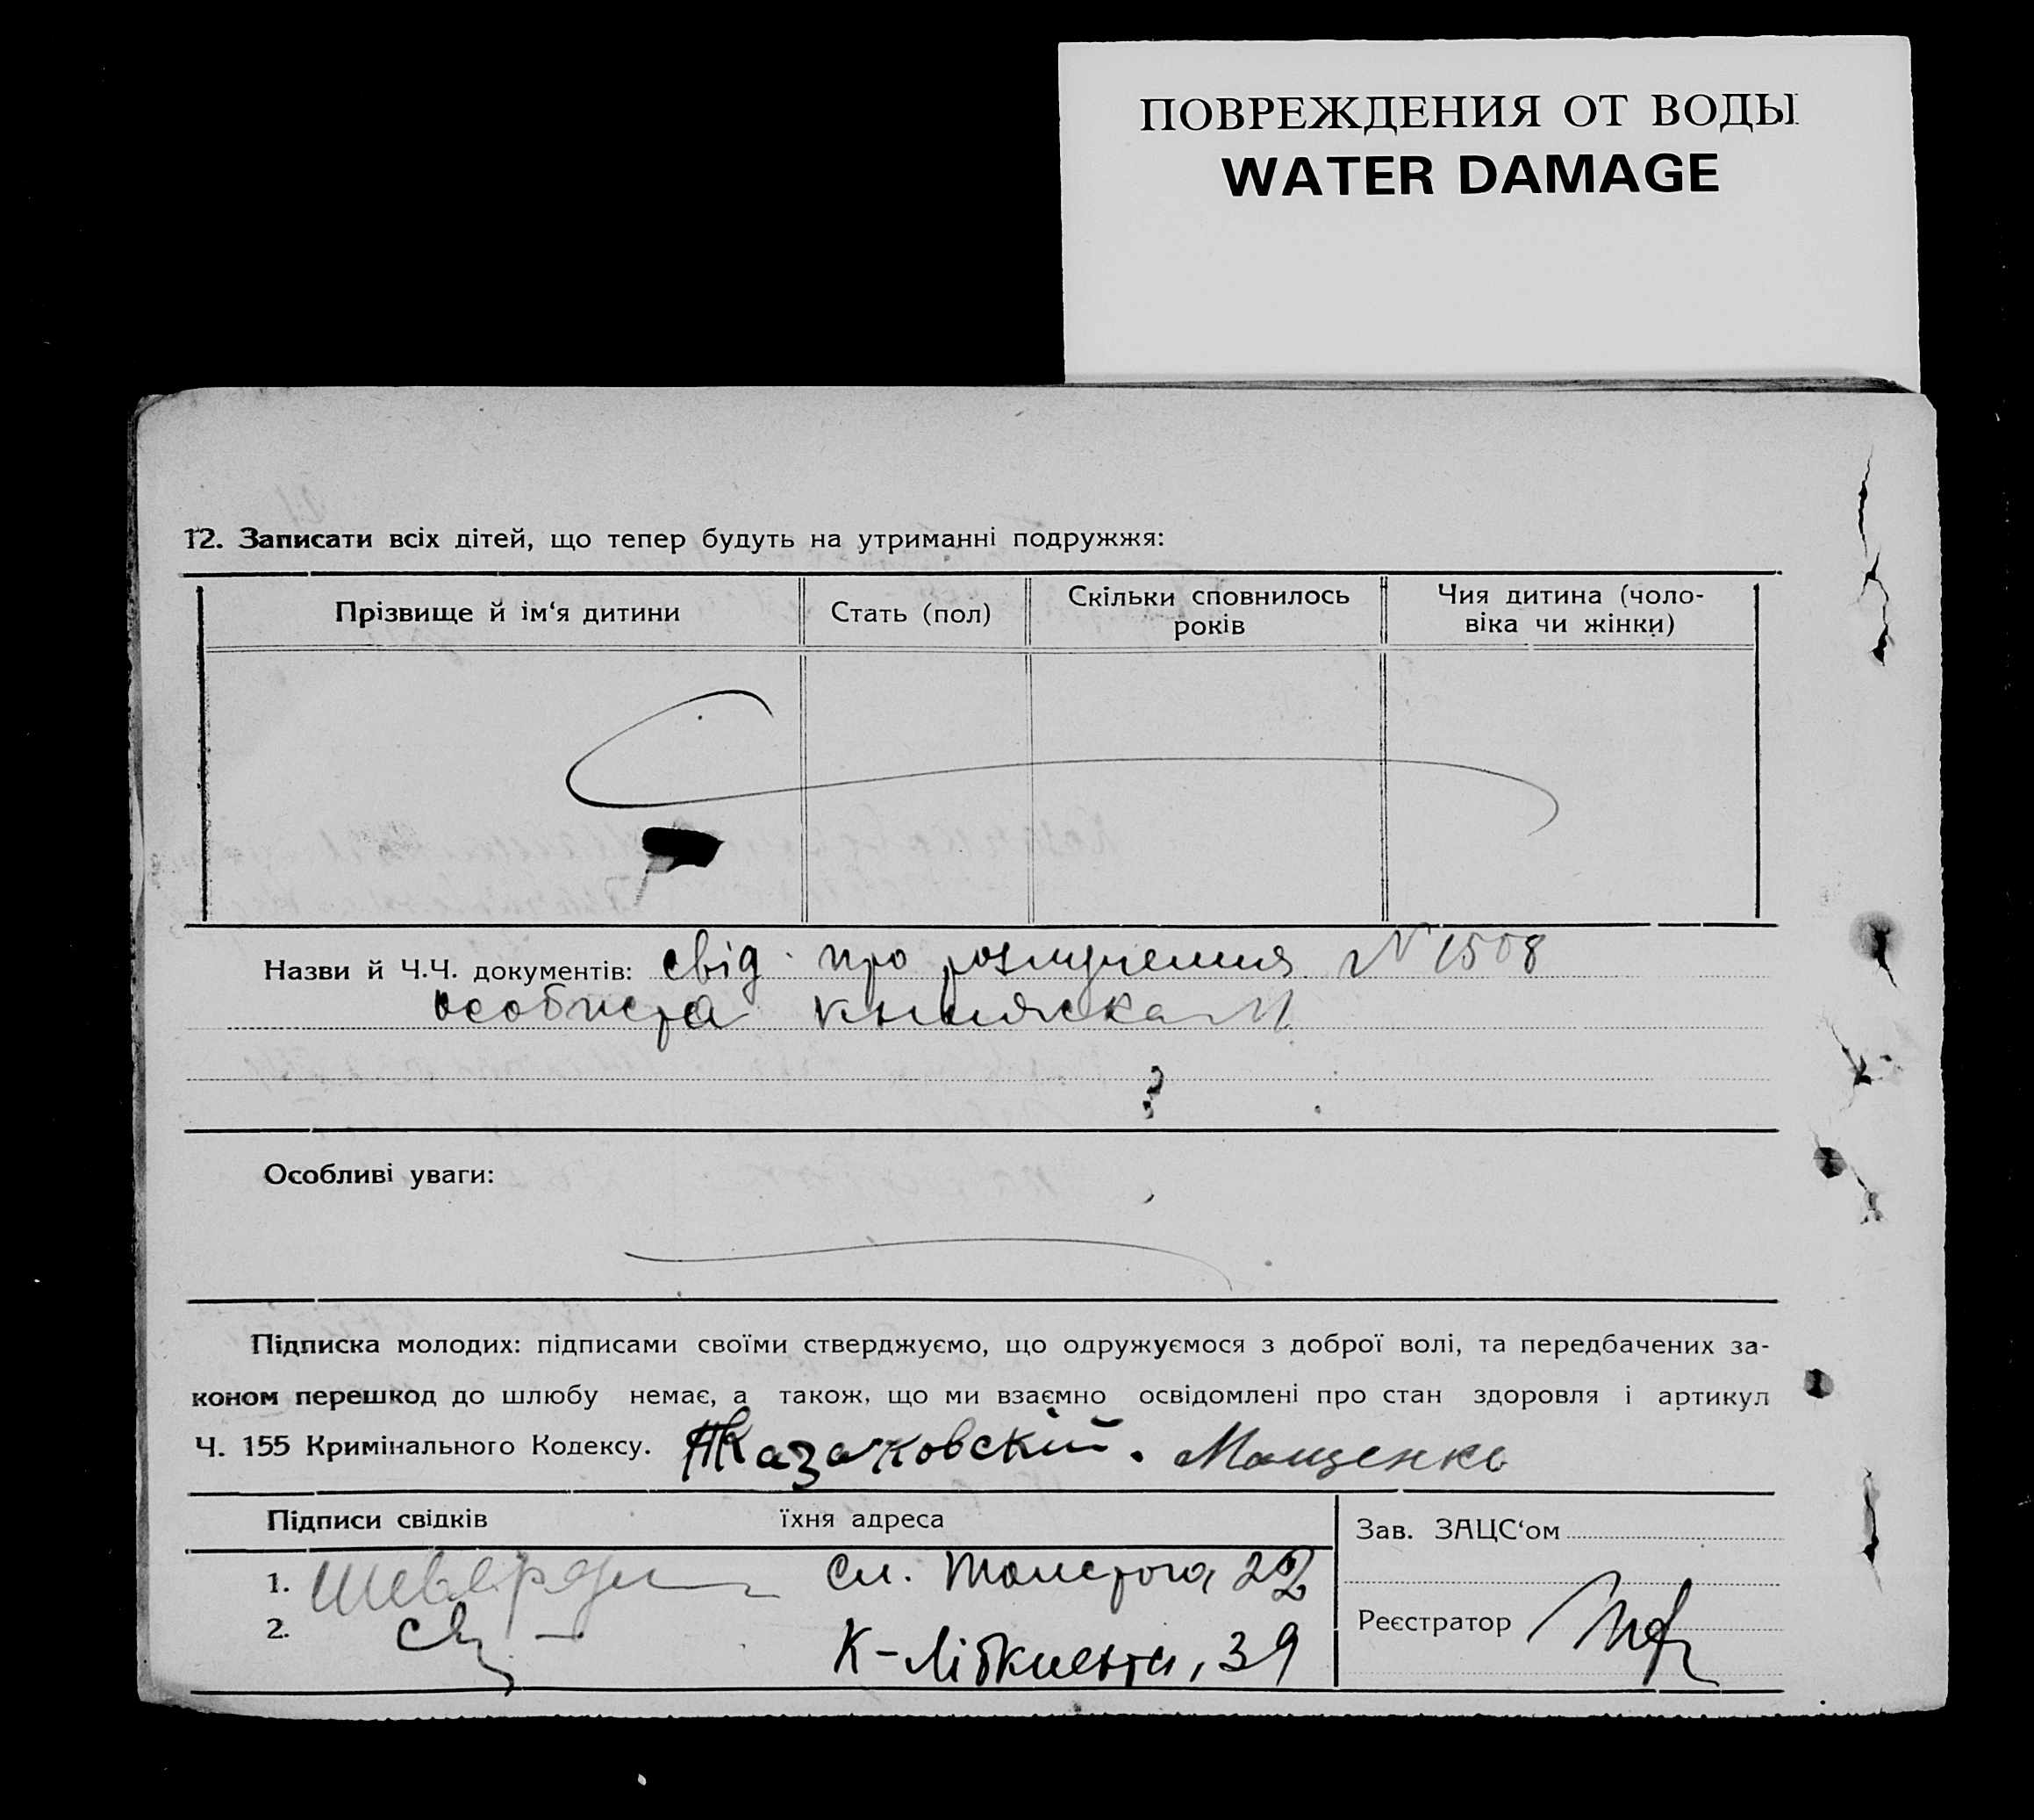 ПОВРЕЖДЕНИЯ ОТ ВОДЫ
WATER DAMAGE
12. Записати всіх дітей, що тепер будуть на утриманні подружжя:
Прізвище й ім‘я дитини
Стать (пол)
Скільки сповнилось
років
Чия дитина (чоло-
віка чи жінки)
Назви й Ч.Ч. документів: свід. про розлучення N 1508
особиста книжка
?
Особливі уваги:
Підписка молодих: підписами своїми стверджуємо, що одружуємося з доброї волі, та передбачених за-
коном перешкод до шлюбу немає, а також, що ми взаємно освідомлені про стан здоровля і артикул
Ч. 155 Кримінального Кодексу. Казаковскій. Мащенко
Підписи свідків їхня адреса
Зав. ЗАЦС‘ом
1. Толстого 22
Реєстратор
2. К-Лібкнехти, 39